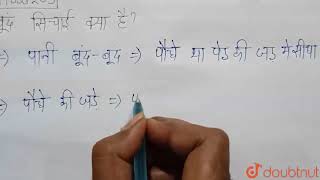 बूंद सिंचाई क्या है?
⇒ पानी बूंद-बूंद ⇒ पौधे या पेड़ की जड़ में सीधा
⇒ पौधे की जड़े ⇒
doubtnut